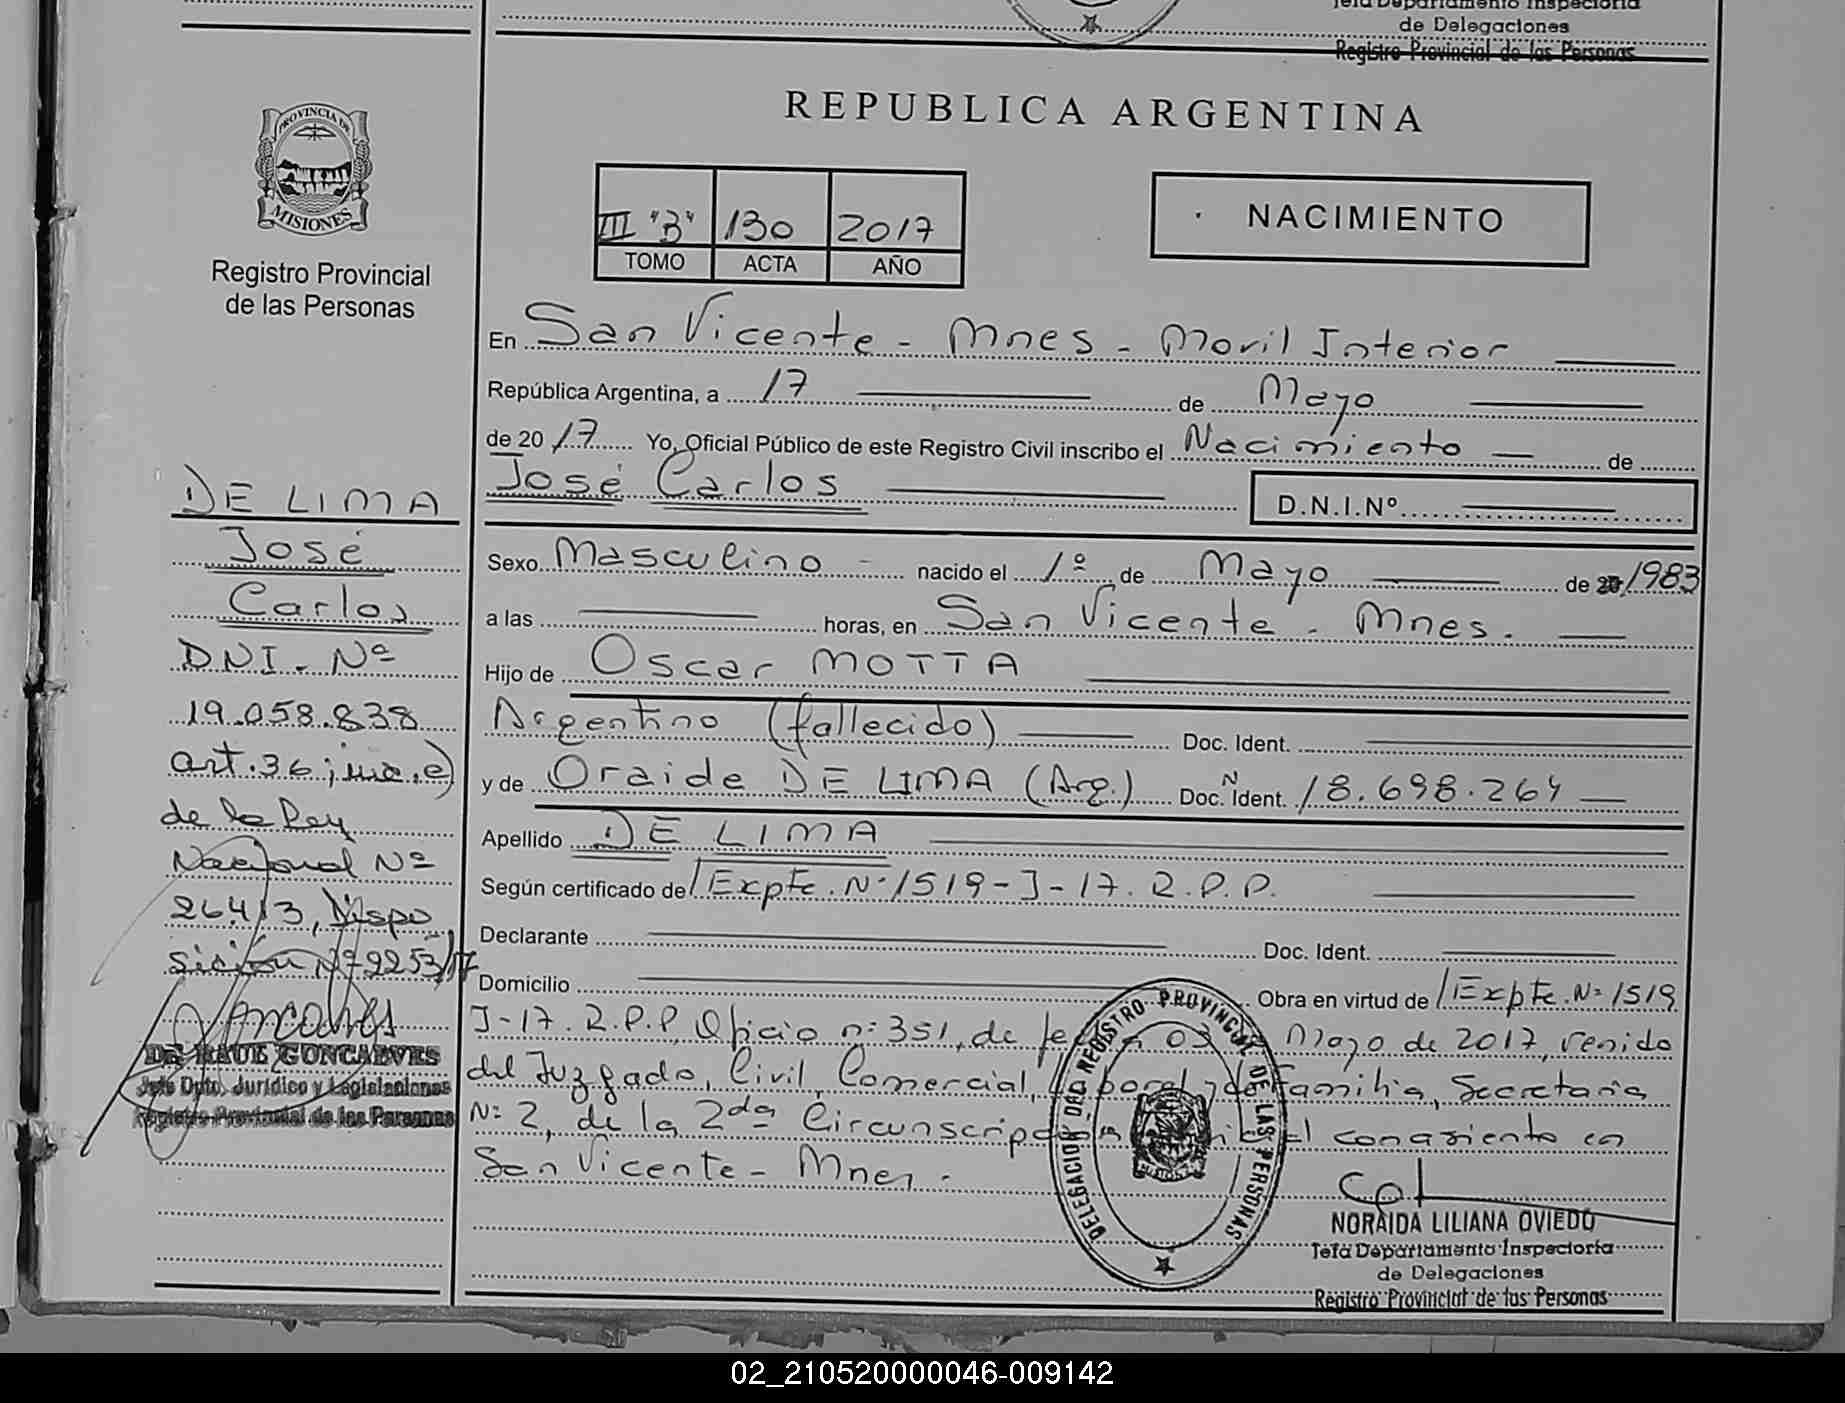 Jefa Departamento Inspectoría
de Delegaciones
Registro Provincial de las Personas
PROVINCIA DE
MISIONES
Registro Provincial
de las Personas
REPUBLICA ARGENTINA
III "B" 130 2017
TOMO ACTA AÑO
NACIMIENTO
En San Vicente - Mnes - Movil Interior
República Argentina, a 17 de Mayo
de 20 17 Yo, Oficial Público de este Registro Civil inscribo el Nacimiento de
José Carlos D.N.I.Nº
Sexo Masculino nacido el 1º de Mayo de 20 1983
a las horas, en San Vicente - Mnes.
Hijo de Oscar MOTTA
Argentino (fallecido) Doc. Ident.
y de Oraide DE LIMA (Arg.) Doc. Ident. Nº 18.698.264
Apellido DE LIMA
Según certificado de Expte. Nº 1519-J-17. R.P.P.
Declarante Doc. Ident.
Domicilio Obra en virtud de Expte. Nº 1519
J-17. R.P.P, Oficio nº 351, de fecha 03 de Mayo de 2017, venido
del Juzgado, Civil, Comercial, Laboral y de Familia, Secretaria
Nº 2, de la 2da Circunscripción Judicial con asiento en
San Vicente - Mnes.
DE LIMA
José
Carlos
DNI. Nº
19.058.838
art. 36, inc. e)
de la Ley
Nacional Nº
26413, Dispo
sición Nº 2253/17
DR. RAUL GONCALVES
Jefe Dpto. Jurídico y Legislaciones
Registro Provincial de las Personas
DELEGACION DEL REGISTRO PROVINCIAL DE LAS PERSONAS
NORAIDA LILIANA OVIEDO
Jefa Departamento Inspectoría
de Delegaciones
Registro Provincial de las Personas
02_210520000046-009142